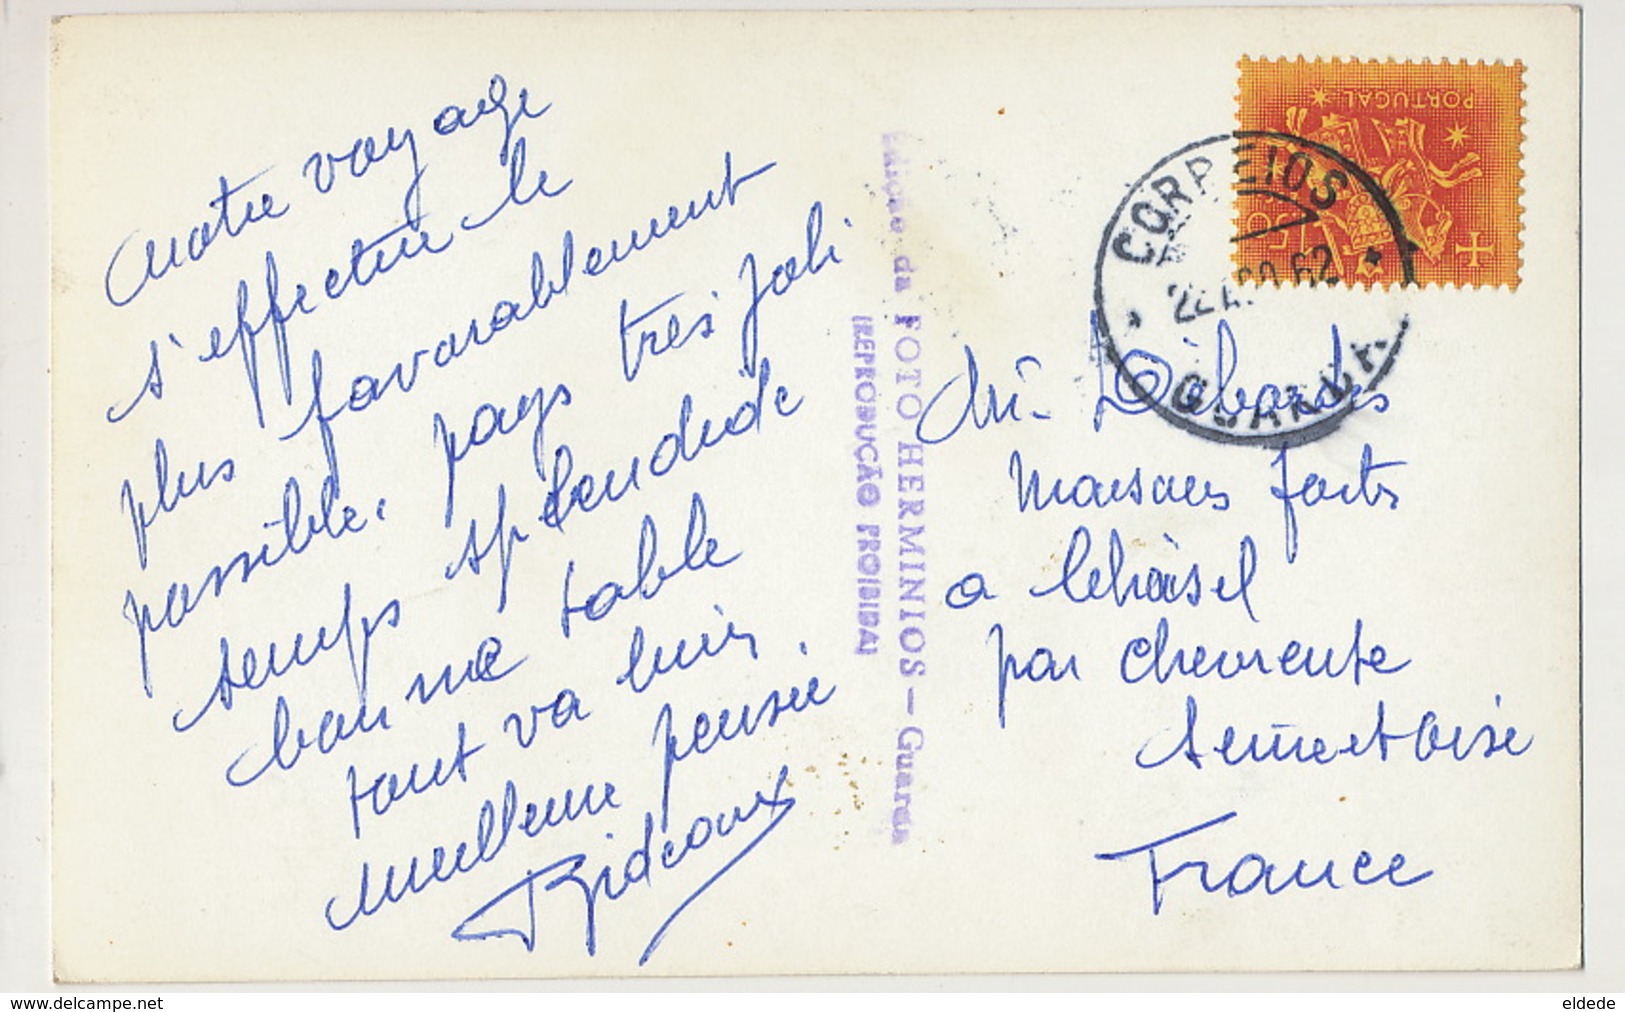 Notre voyage
s'effectue le
plus favorablement
possible. pays très joli
temps splendide
bonne table
tout va bien.
meilleure pensée
Bideaux
Edição da FOTO HERMINIOS — Guarda
(REPRODUÇÃO PROIBIDA)
PORTUGAL
CORREIOS
22 AGO 62
GUARDA
Mr Débordes
Maisons forts
a
par chevreuse
Seine et Oise
France
www.delcampe.net
eldede